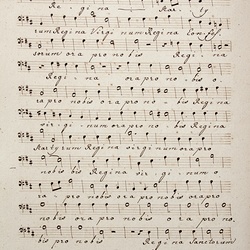 Re - gi - na Mar - ty
rum Regina Virginum Regina Confes
sorum ora pro nobis Regi - na
Regi - na ora pro no - bis o
ra pro nobis ora pro no - bis Regina
virginum ora pro no - bis Regina
Martyrum Regina virginum ora pro
nobis bis Regina vir - gi - num o
ra pro no - bis ora pro nobis ora pro
nobis ora pro nobis ora pro no
bis pro nobis Regina Sanctorum